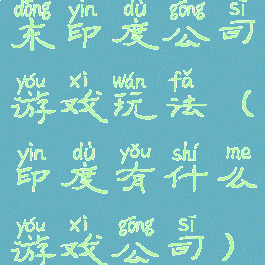 dōng yìn dù gōng sī
东印度公司
yóu xì wán fǎ
游戏玩法（
yìn dù yǒu shí me
印度有什么
yóu xì gōng sī
游戏公司）